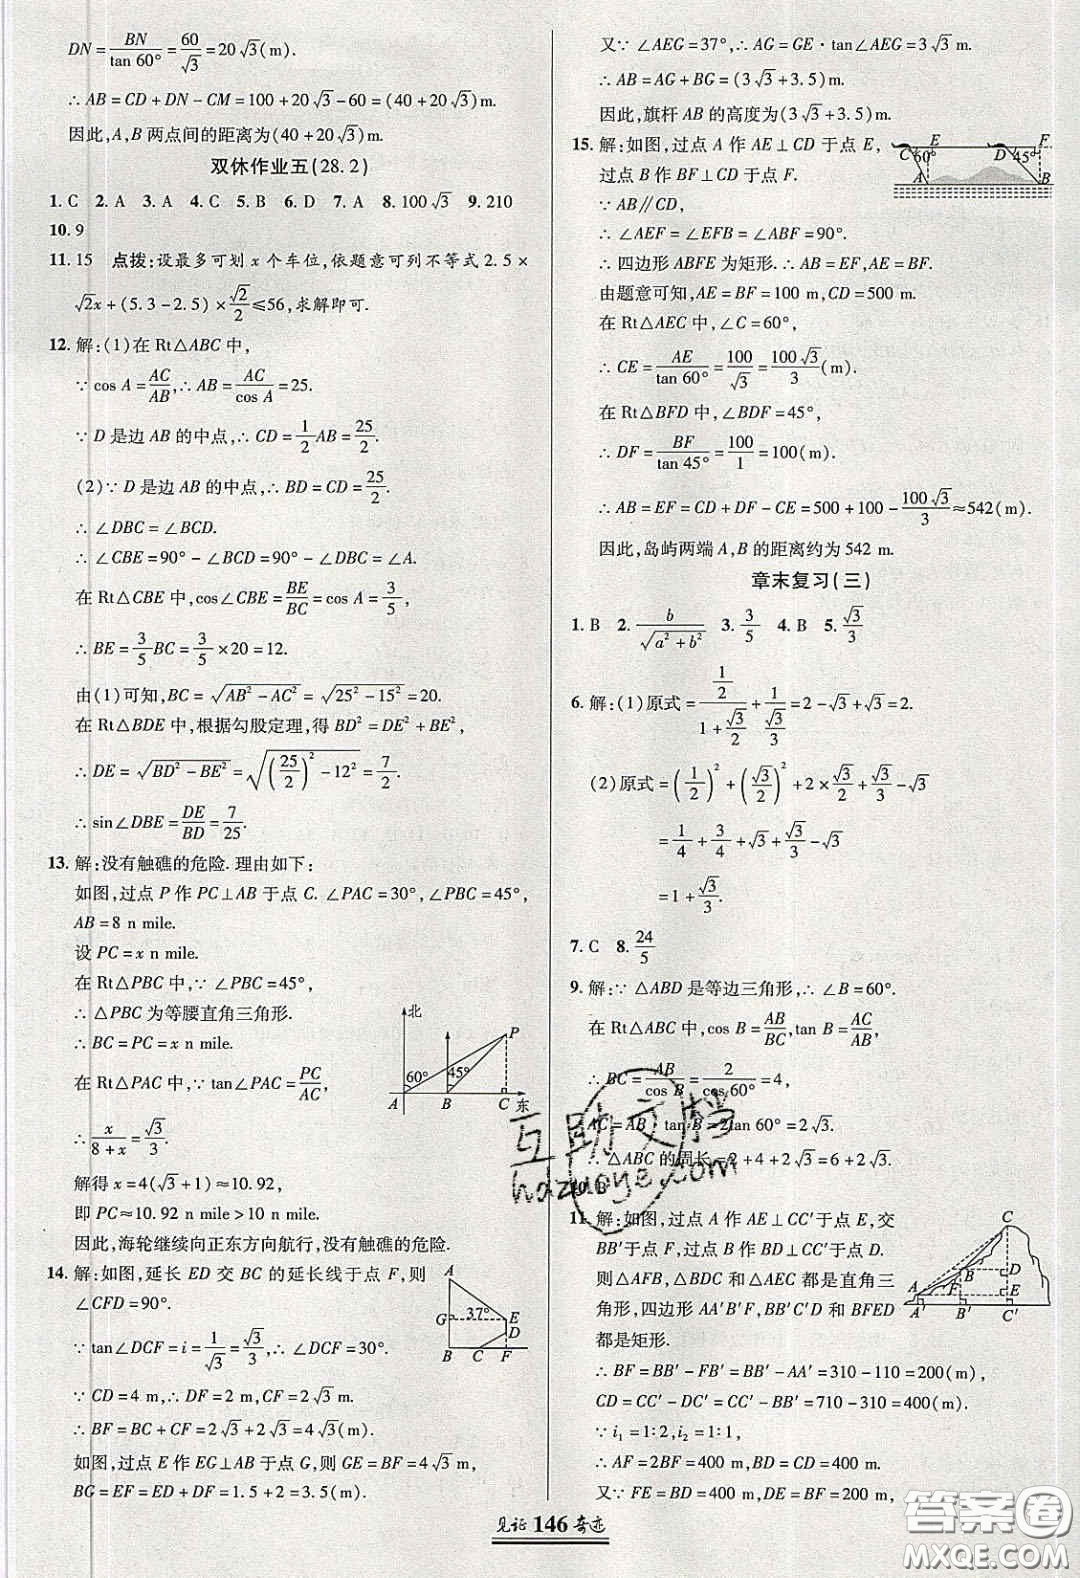 DN=BN/tan 60°=60/√3=20√3(m).
∴AB=CD+DN−CM=100+20√3−60=(40+20√3)m.
因此,A,B两点间的距离为(40+20√3)m.
双休作业五(28.2)
1. C 2. A 3. A 4. C 5. B 6. D 7. A 8. 100√3 9. 210
10. 9
11. 15 点拨:设最多可划x个车位,依题意可列不等式2.5×
√2x+(5.3−2.5)×√2/2≤56,求解即可.
12. 解:(1)在Rt△ABC中,
∵cos A=AC/AB,∴AB=AC/cos A=25.
∵D是边AB的中点,∴CD=1/2AB=25/2.
(2)∵D是边AB的中点,∴BD=CD=25/2.
∴∠DBC=∠BCD.
∴∠CBE=90°−∠BCD=90°−∠DBC=∠A.
在Rt△CBE中,cos∠CBE=BE/BC=3/5,
∴BE=3/5BC=3/5×20=12.
由(1)可知,BC=√(AB²−AC²)=√(25²−15²)=20.
在Rt△BDE中,根据勾股定理,得BD²=DE²+BE²,
∴DE=√(BD²−BE²)=√((25/2)²−12²)=7/2.
∴sin∠DBE=DE/BD=7/25.
13. 解:没有触礁的危险.理由如下:
如图,过点P作PC⊥AB于点C.∠PAC=30°,∠PBC=45°,
AB=8 n mile.
设PC=x n mile.
在Rt△PBC中,∵∠PBC=45°,
∴△PBC为等腰直角三角形.
∴BC=PC=x n mile.
在Rt△PAC中,∵tan∠PAC=PC/AC,
∴x/(8+x)=√3/3.
解得x=4(√3+1)≈10.92,
即PC≈10.92 n mile>10 n mile.
因此,海轮继续向正东方向航行,没有触礁的危险.
北
P
60° 45°
A B C 东
14. 解:如图,延长ED交BC的延长线于点F,则
∠CFD=90°.
∵tan∠DCF=i=1/√3=√3/3,∴∠DCF=30°.
∵CD=4 m,∴DF=2 m,CF=2√3 m.
∴BF=BC+CF=2√3+2√3=4√3(m).
如图,过点E作EG⊥AB于点G,则GE=BF=4√3 m,
BG=EF=ED+DF=1.5+2=3.5(m).
A
G 37° E
D
B C F
又∵∠AEG=37°,∴AG=GE·tan∠AEG=3√3 m.
∴AB=AG+BG=(3√3+3.5)m.
因此,旗杆AB的高度为(3√3+3.5)m.
15. 解:如图,过点A作AE⊥CD于点E,
过点B作BF⊥CD于点F.
∵AB∥CD,
∴∠AEF=∠EFB=∠ABF=90°.
∴四边形ABFE为矩形.∴AB=EF,AE=BF.
由题意可知,AE=BF=100 m,CD=500 m.
在Rt△AEC中,∠C=60°,
∴CE=AE/tan 60°=100/√3=100√3/3(m).
在Rt△BFD中,∠BDF=45°,
∴DF=BF/tan 45°=100/1=100(m).
∴AB=EF=CD+DF−CE=500+100−100√3/3≈542(m).
因此,岛屿两端A,B的距离约为542 m.
C 60° E D 45° F
A B
章末复习(三)
1. B 2. b/√(a²+b²) 3. 3/5 4. B 5. √3/3
6. 解:(1)原式=(1/2)/(1+√3/2)+1/(√3/3)=2−√3+√3=2.
(2)原式=(1/2)²+(√3/2)²+2×√3/2+√3/3−√3
=1/4+3/4+√3+√3/3−√3
=1+√3/3.
7. C 8. 24/5
9. 解:∵△ABD是等边三角形,∴∠B=60°.
在Rt△ABC中,cos B=AB/BC,tan B=AC/AB,
∴BC=AB/cos B=2/cos 60°=4,
AC=AB tan B=2tan 60°=2√3.
∴△ABC的周长=2+4+2√3=6+2√3.
10. B
11. 解:如图,过点A作AE⊥CC′于点E,交
BB′于点F,过点B作BD⊥CC′于点D.
则△AFB,△BDC和△AEC都是直角三
角形,四边形AA′B′F,BB′C′D和BFED
都是矩形.
∴BF=BB′−FB′=BB′−AA′=310−110=200(m),
CD=CC′−DC′=CC′−BB′=710−310=400(m).
∵i₁=1∶2,i₂=1∶1,
∴AF=2BF=400 m,BD=CD=400 m.
又∵FE=BD=400 m,DE=BF=200 m,
C
B D
A F E
A′ B′ C′
互助文档
hdzuoye.com
见证 146 奇迹
答案圈
MXQE.COM